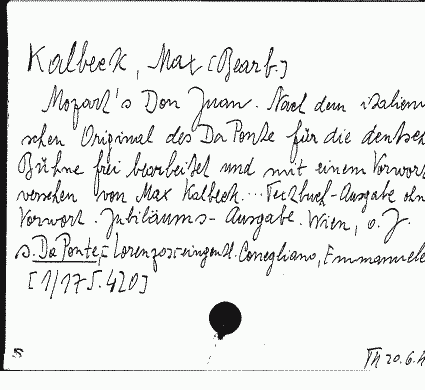 Kalbeck, Max [Bearb.]
Mozart's Don Juan. Nach dem italieni
schen Original des Da Ponte für die deutsche
Bühne frei bearbeitet und mit einem Vorwort
versehen von Max Kalbeck. ... Textbuch-Ausgabe ohn
Vorwort. Jubiläums-Ausgabe. Wien, o. J.
s. Da Ponte, Lorenzo: eingent. Conegliano, Emmanuele
[1/175.420]
S Th 20.6.